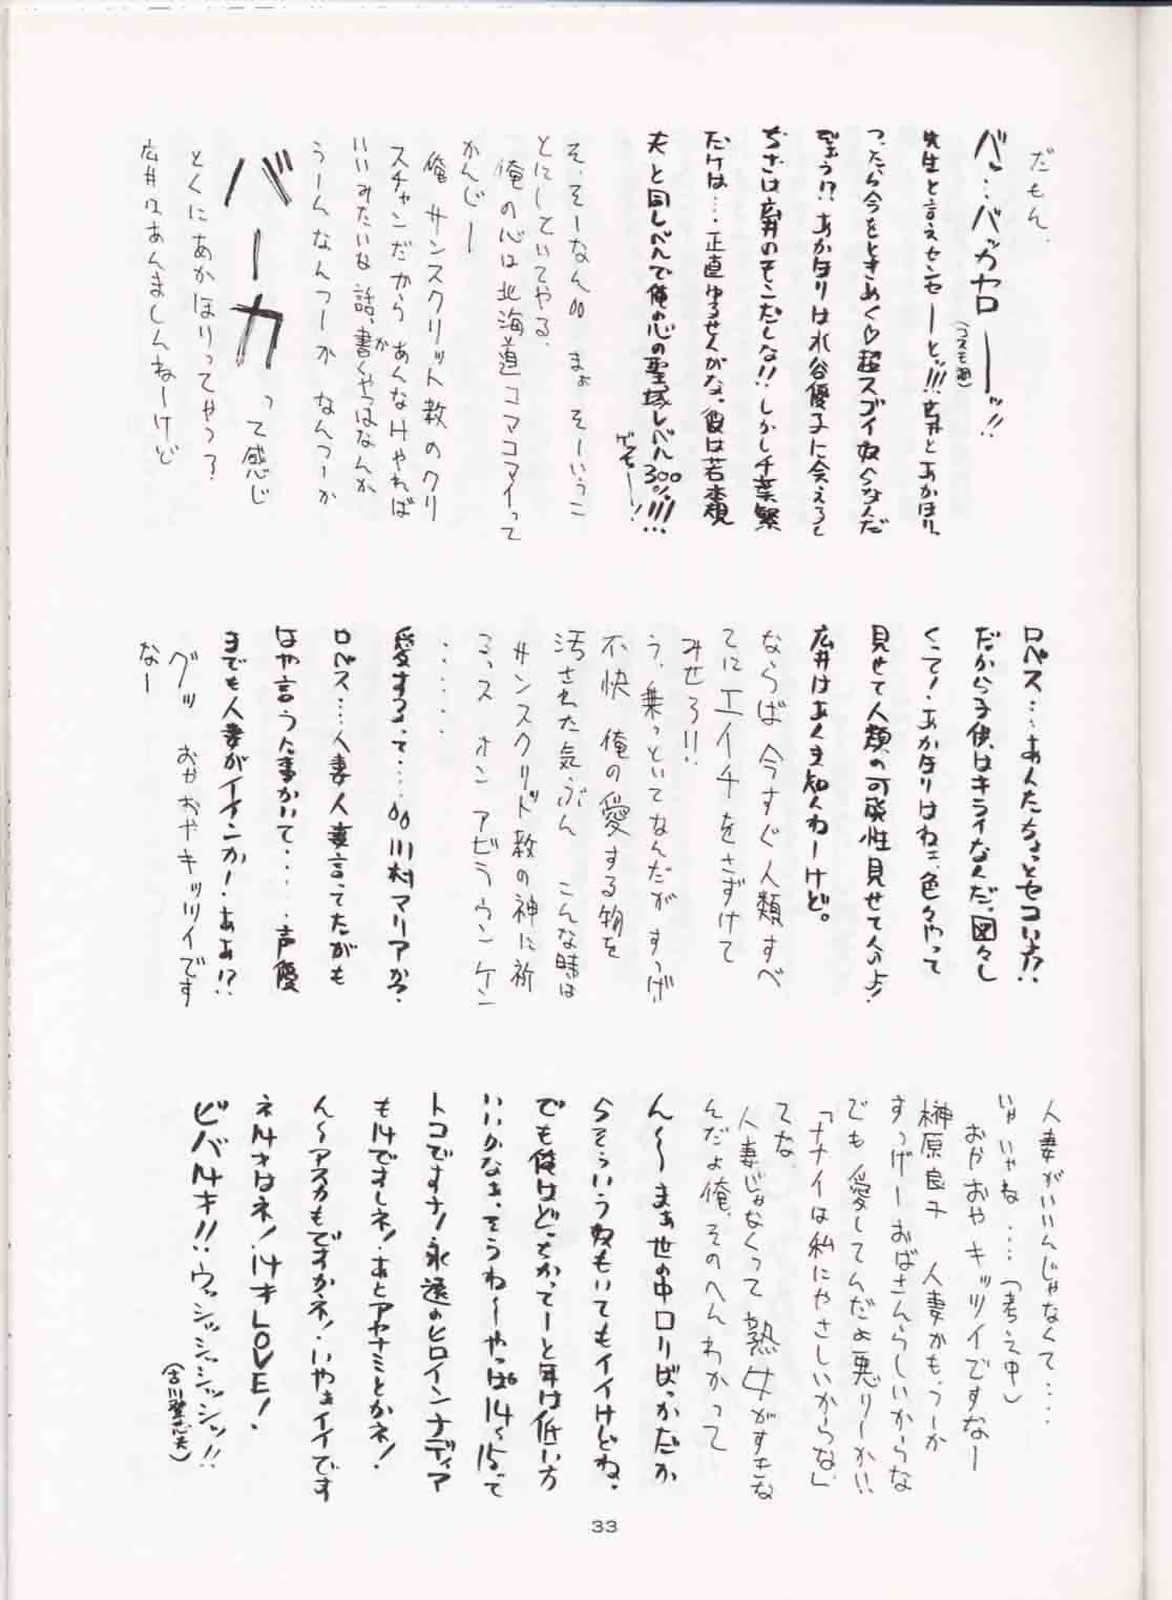 だもん。
バ…バッカヤローッ!!
先生と言えセンセーーと!!!広井とあかほり、
つったら今をときめく♡超スゴイ奴らなんだ
ぞう!?あかほりは水谷優子に会えるし
ちさは広井のモンだしな!!しかし千葉繁
だけは…正直ゆるせんがな。彼は若本規
夫と同レベルで俺の心の聖域レベル300%!!!…
そ、そーなん まぁ そーいうこ
とにしといてやる。
俺の心は北海道コマコマイって
かんじー
俺 サンスクリット教のクリ
スチャンだから あんなけやれば
いいみたいな話、書くやつはなんか
うーんなんつーか なんつーか
バーカ って感じ
とくにあかほりってやつ?
広井はあんましんねーけど
ロペス…あんたちょっとセコい!?
だから子供はキライなんだ。図々し
くって!あかほりはねェ、色々やって
見せて人類の可能性見せてんのよ!
広井はあくま知んねーけど。
ならば今すぐ人類すべ
てにエイチをさずけて
みせろ!!
う、乗っといてなんだが すっげ
不快 俺の愛する物を
汚された気ぶん こんな時は
サンスクリット教の神に祈
る、ス オン アビラウンケン
・・・・・
愛するって…川村マリアか?
ロペス…人妻人妻言ってたがも
はや言うた事かいて…声優
までも人妻がイインか!あぁ!?
グッ おやおやキッツイです
なー
人妻がいいんじゃなくて…
いや いやね…(考え中)
おやおや キッツイですなー
榊原良子 人妻かも、つーか
すっげーおばさんらしいからな
でも 愛してんだよ悪りーかい
「ナナイは私にやさしいからな」
てな
人妻じゃなくって熟女がすきな
んだよ俺、そのへんわかって
ん〜〜まぁ世の中ロリばっかだか
らそういう奴もいてもイイけどね。
でも俺はどっちかってーと年は低い方
いいかなぁ、そうね〜やっぱ14〜15って
トコですナ!永遠のヒロインナディア
も14ですしネ!あとアヤナミとかネ!
ん〜アスカもですかネ!いやぁイイです
ネ14才はネ!14才LOVE!
ビバ14才!!ウッシッシッシッシッ!!
(古川登志夫)
33